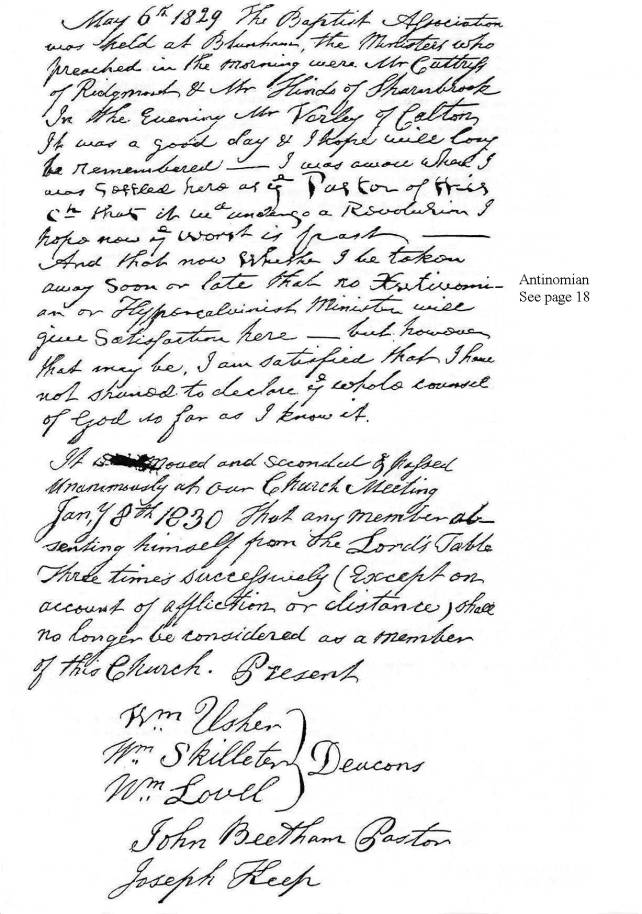 May 6th 1829 The Baptist Association
was held at Blunham, the Ministers who
preached in the morning were Mr Cuttriss
of Ridgmount & Mr Hinds of Sharnbrook
In the Evening Mr Varley of Calton
It was a good day & I hope will long
be remembered — I was aware when I
was Settled here as ye Pastor of this
Ch that it wd undergo a Revolution I
hope now ye worst is past —
And that now Whether I be taken
away soon or late that no Antinomi-
an or Hypercalvinist Minister will
give Satisfaction here — but however
that may be, I am satisfied that I have
not shuned to declare ye whole counsel
of God so far as I know it.
It moved and seconded & passed
Unanimously at our Church Meeting
Jany 8th 1830 That any member ab-
senting himself from the Lord's Table
Three times successively (Except on
account of affliction or distance) shall
no longer be considered as a member
of this Church. Present
Wm Usher
Wm Skilleter
Deacons
Wm Lovell
John Beetham Pastor
Joseph Keep
Antinomian
See page 18